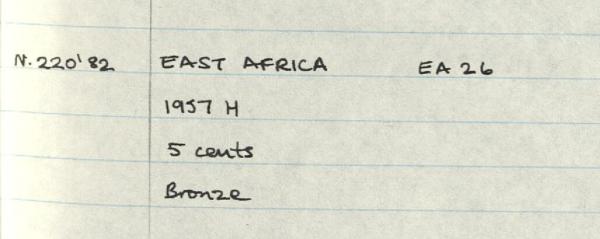 N. 220'82 EAST AFRICA EA 26
1957 H
5 cents
Bronze